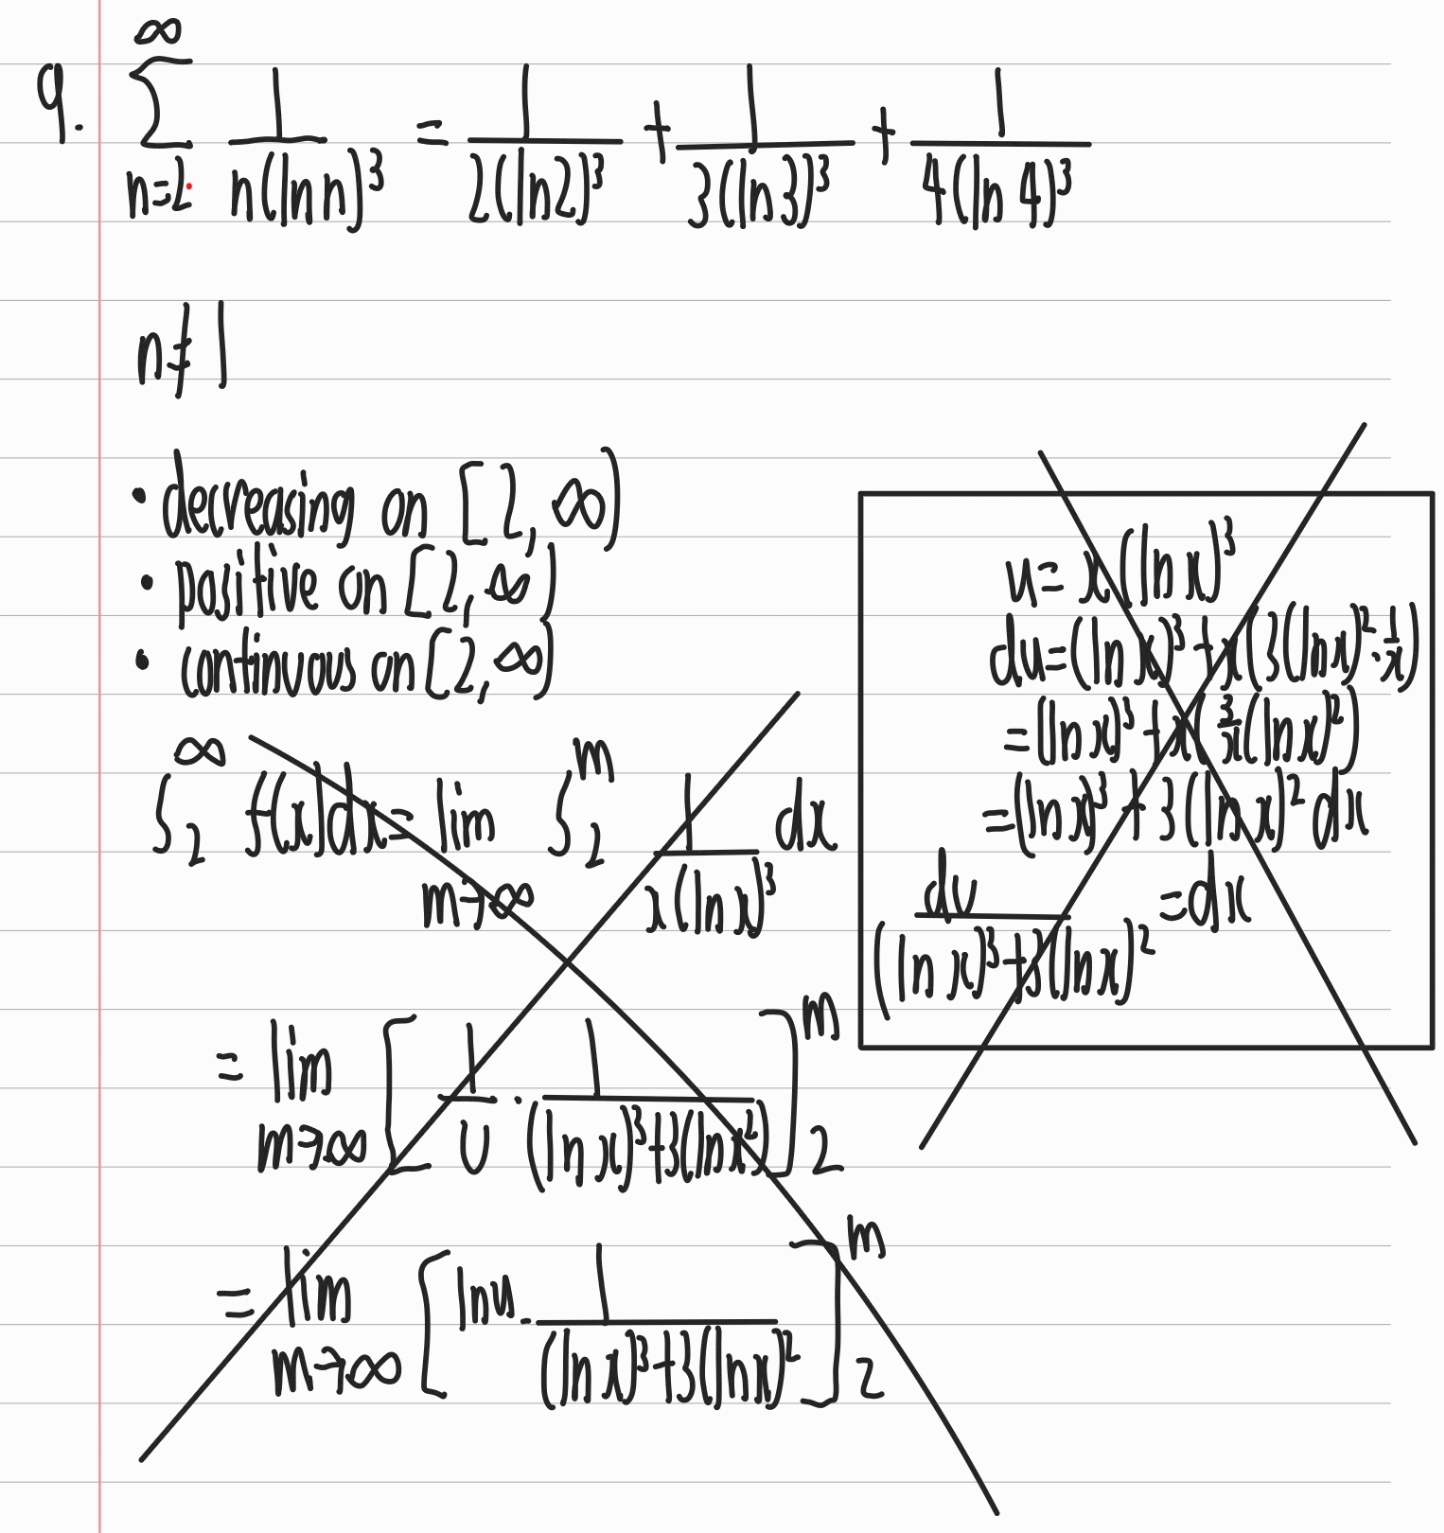 9. ∞∑n=2 1/n(ln n)³ = 1/2(ln2)³ + 1/3(ln3)³ + 1/4(ln 4)³
n≠1
• decreasing on [2, ∞)
• positive on [2, ∞)
• continuous on [2, ∞)
∫₂^∞ f(x)dx = lim m→∞ ∫₂^m 1/x(ln x)³ dx
= lim m→∞ [1/u · 1/((ln x)³+3(ln x)²)]₂^m
= lim m→∞ [ln u · 1/((ln x)³+3(ln x)²]₂^m
u = x(ln x)³
du = (ln x)³ + x(3(ln x)² · 1/x)
= (ln x)³ + x(3/x(ln x)²)
= (ln x)³ + 3(ln x)² dx
du/((ln x)³+3(ln x)² = dx